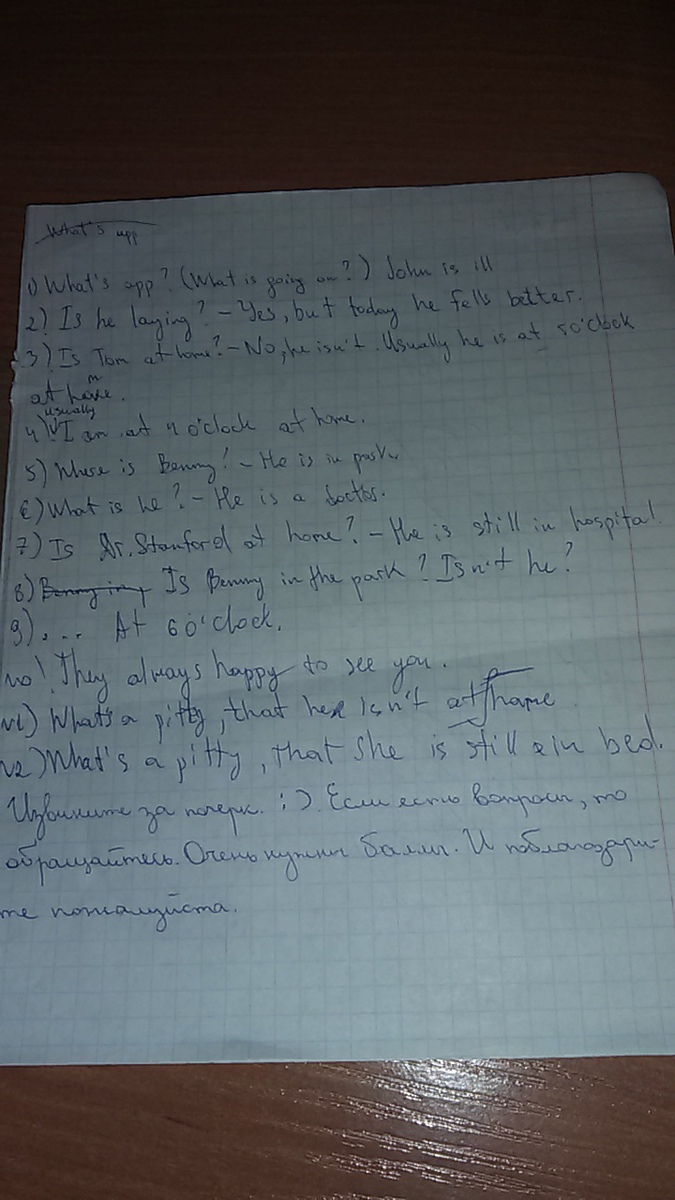 What's app
1) What's app? (What is going on?) John is ill
2) Is he laying? - Yes, but today he fells better.
3) Is Tom at home? - No, he isn't. Usually he is at 5 o'clock
at home.
usually
4) I am at 4 o'clock at home.
5) Where is Benny? - He is in park.
6) What is he? - He is a doctor.
7) Is Dr. Stanford at home? - He is still in hospital.
8) Is Benny in the park? Isn't he?
9) ... At 6 o'clock.
10) They always happy to see you.
11) What's a pitty, that he isn't at home
12) What's a pitty, that she is still in bed.
Извините за почерк. :). Если есть вопросы, то
обращайтесь. Очень нужны баллы. И поблагодари-
те пожалуйста.